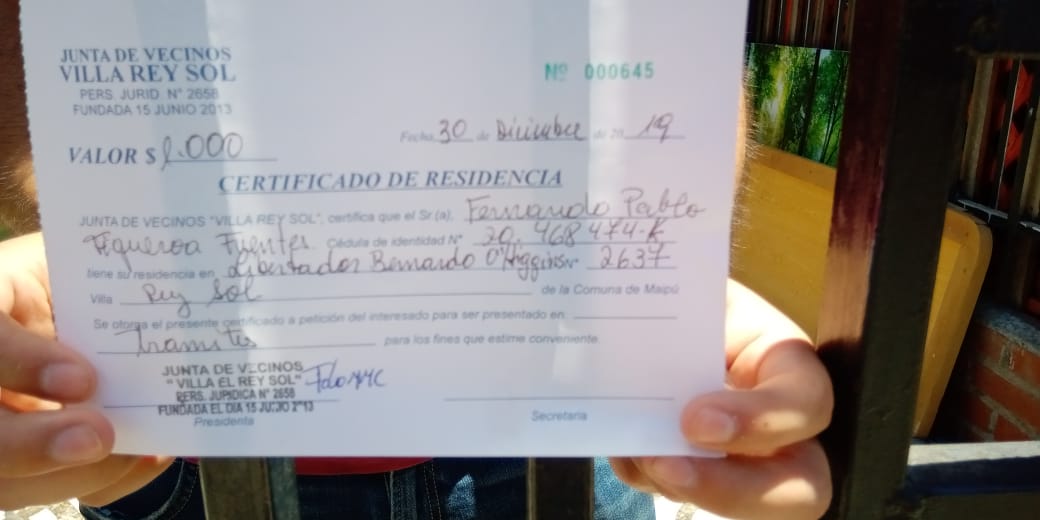 JUNTA DE VECINOS
VILLA REY SOL
PERS. JURID. Nº 2658
FUNDADA 15 JUNIO 2013
Nº 000645
Fecha, 30 de Diciembre de 2019
VALOR $ 1.000
CERTIFICADO DE RESIDENCIA
JUNTA DE VECINOS "VILLA REY SOL", certifica que el Sr (a), Fernando Pablo
Figueroa Fuentes. Cédula de identidad Nº 20.468474-K
tiene su residencia en Libertador Bernardo O'Higgins Nº 2637
Villa Rey Sol de la Comuna de Maipú
Se otorga el presente certificado a petición del interesado para ser presentado en
Tramites para los fines que estime conveniente.
JUNTA DE VECINOS
" VILLA EL REY SOL"
PERS. JURIDICA Nº 2658
FUNDADA EL DIA 15 JUNIO 2013
Presidenta
Secretaria